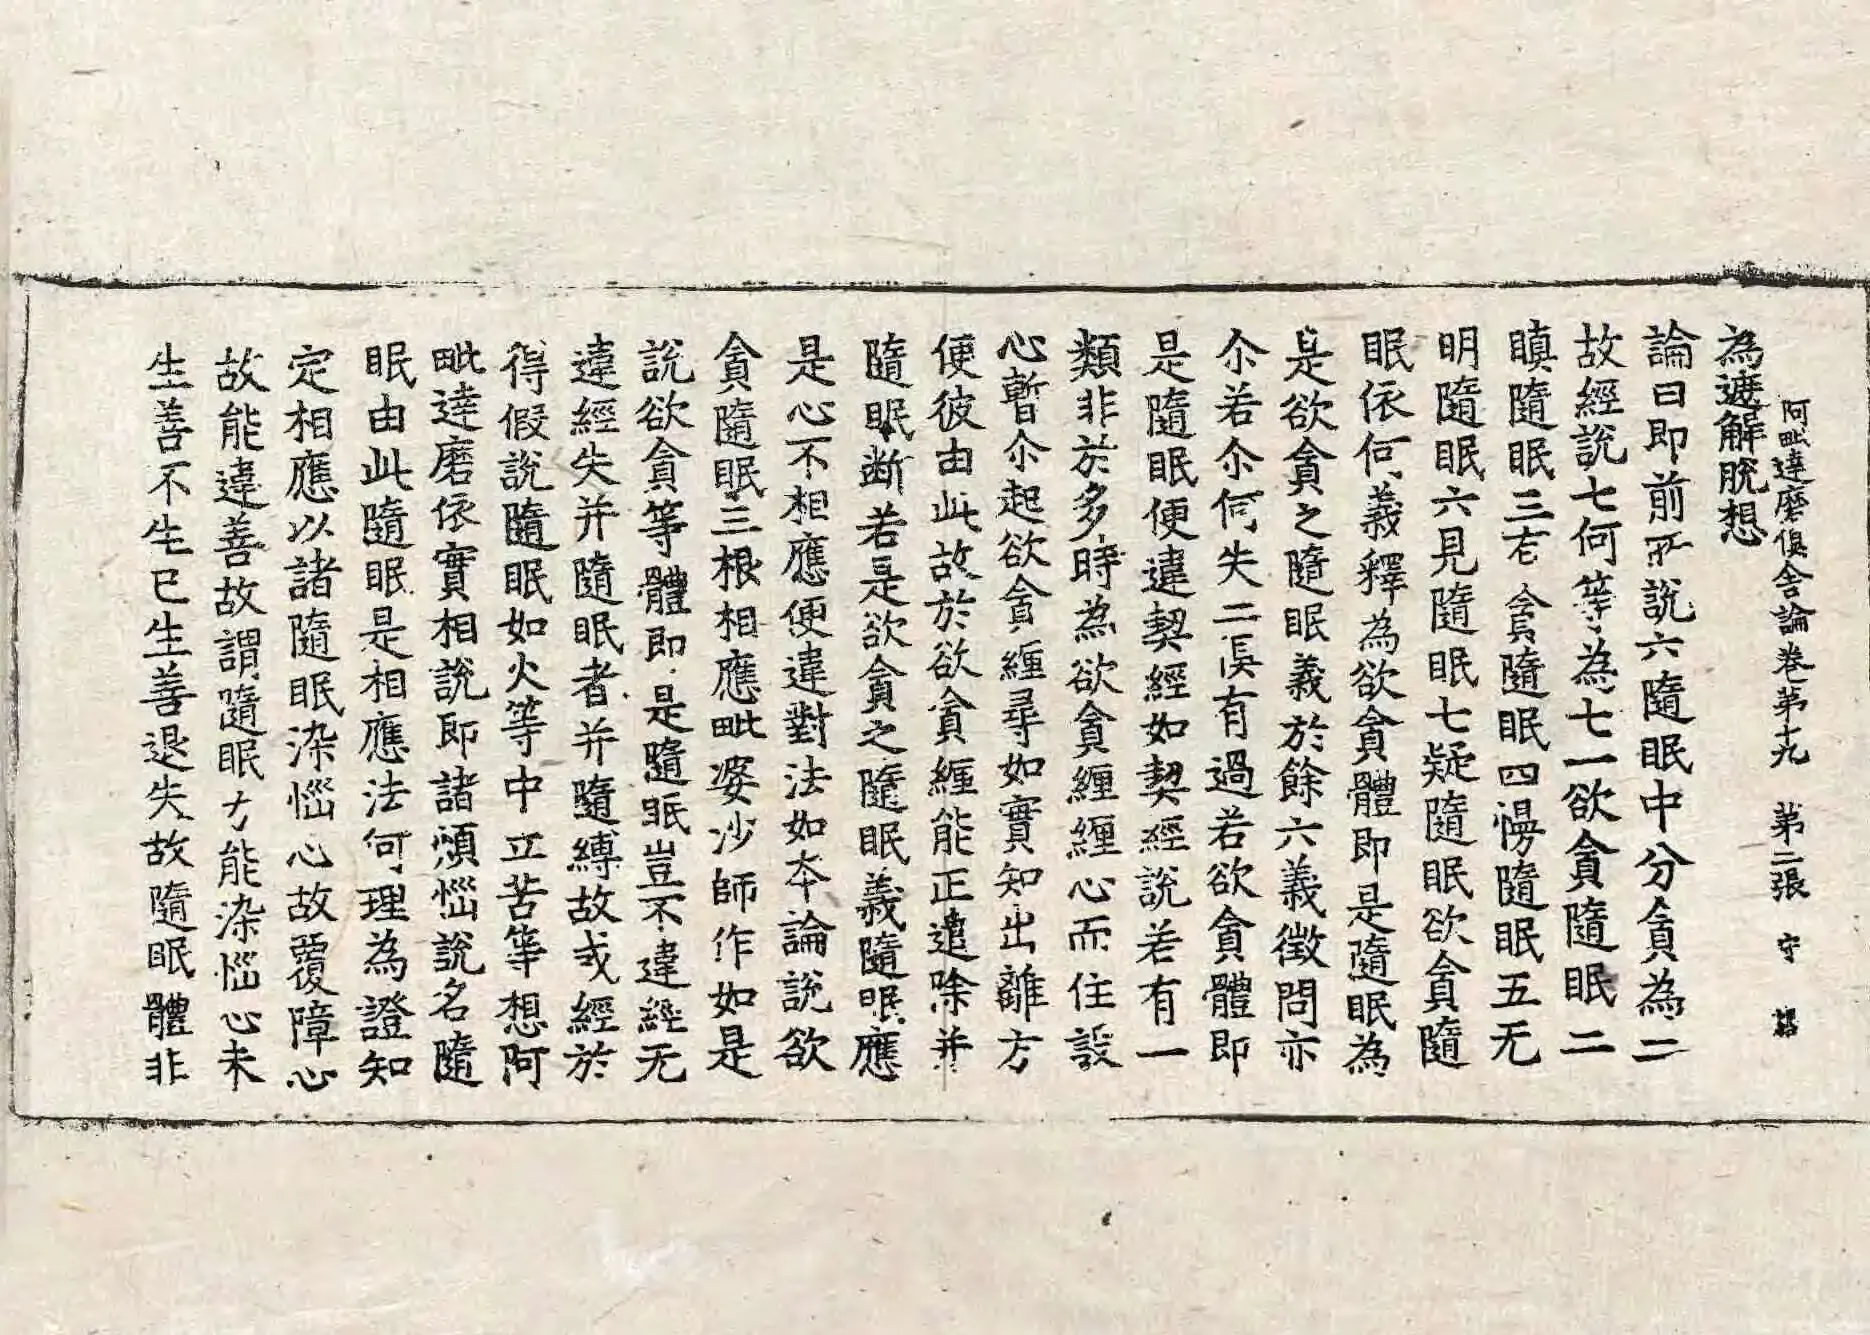 阿毗達磨俱舍論卷第十九 第二張 守
為遮解脫想
論曰即前所說六隨眠中分貪為二
故經說七何等為七一欲貪隨眠二
瞋隨眠三有貪隨眠四慢隨眠五无
明隨眠六見隨眠七疑隨眠欲貪隨
眠依何義釋為欲貪體即是隨眠為
是欲貪之隨眠義於餘六義徵問亦
尒若尒何失二俱有過若欲貪體即
是隨眠便違契經如契經說若有一
類非於多時為欲貪纏纏心而住設
心暫尒起欲貪纏尋如實知出離方
便彼由此故於欲貪纏能正遣除并
隨眠断若是欲貪之隨眠義隨眠應
是心不相應便違對法如本論說欲
貪隨眠三根相應毗婆沙師作如是
說欲貪等體即是隨眠豈不違經无
違經失并隨眠者并隨縛故或經於
得假說隨眠如火等中立苦等想阿
毗達磨依實相說即諸煩惱說名隨
眠由此隨眠是相應法何理為證知
定相應以諸隨眠染惱心故覆障心
故能違善故謂隨眠力能染惱心未
生善不生已生善退失故隨眠體非